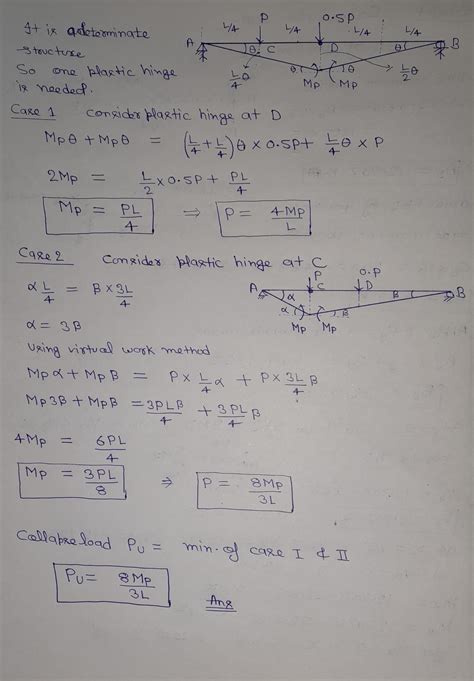 It is a determinate
structure
So one plastic hinge
is needed.
L/4 P L/4 0.5P L/4 L/4
A θ C D θ B
L/4 θ θ θ L/2 θ
Mp Mp
Case 1 Consider plastic hinge at D
Mpθ + Mpθ = (L/4 + L/4) θ x 0.5P + L/4 θ x P
2Mp = L/2 x 0.5P + PL/4
Mp = PL/4 ⇒ P = 4Mp/L
Case 2 Consider plastic hinge at C
P 0.P
A α C D β B
α β
Mp Mp
α L/4 = β x 3L/4
α = 3β
Using virtual work method
Mpα + Mpβ = P x L/4 α + P x 3L/4 β
Mp3β + Mpβ = 3PLβ/4 + 3PL/4 β
4Mp = 6PL/4
Mp = 3PL/8 ⇒ P = 8Mp/3L
Collapse load Pu = min. of case I & II
Pu = 8Mp/3L Ans